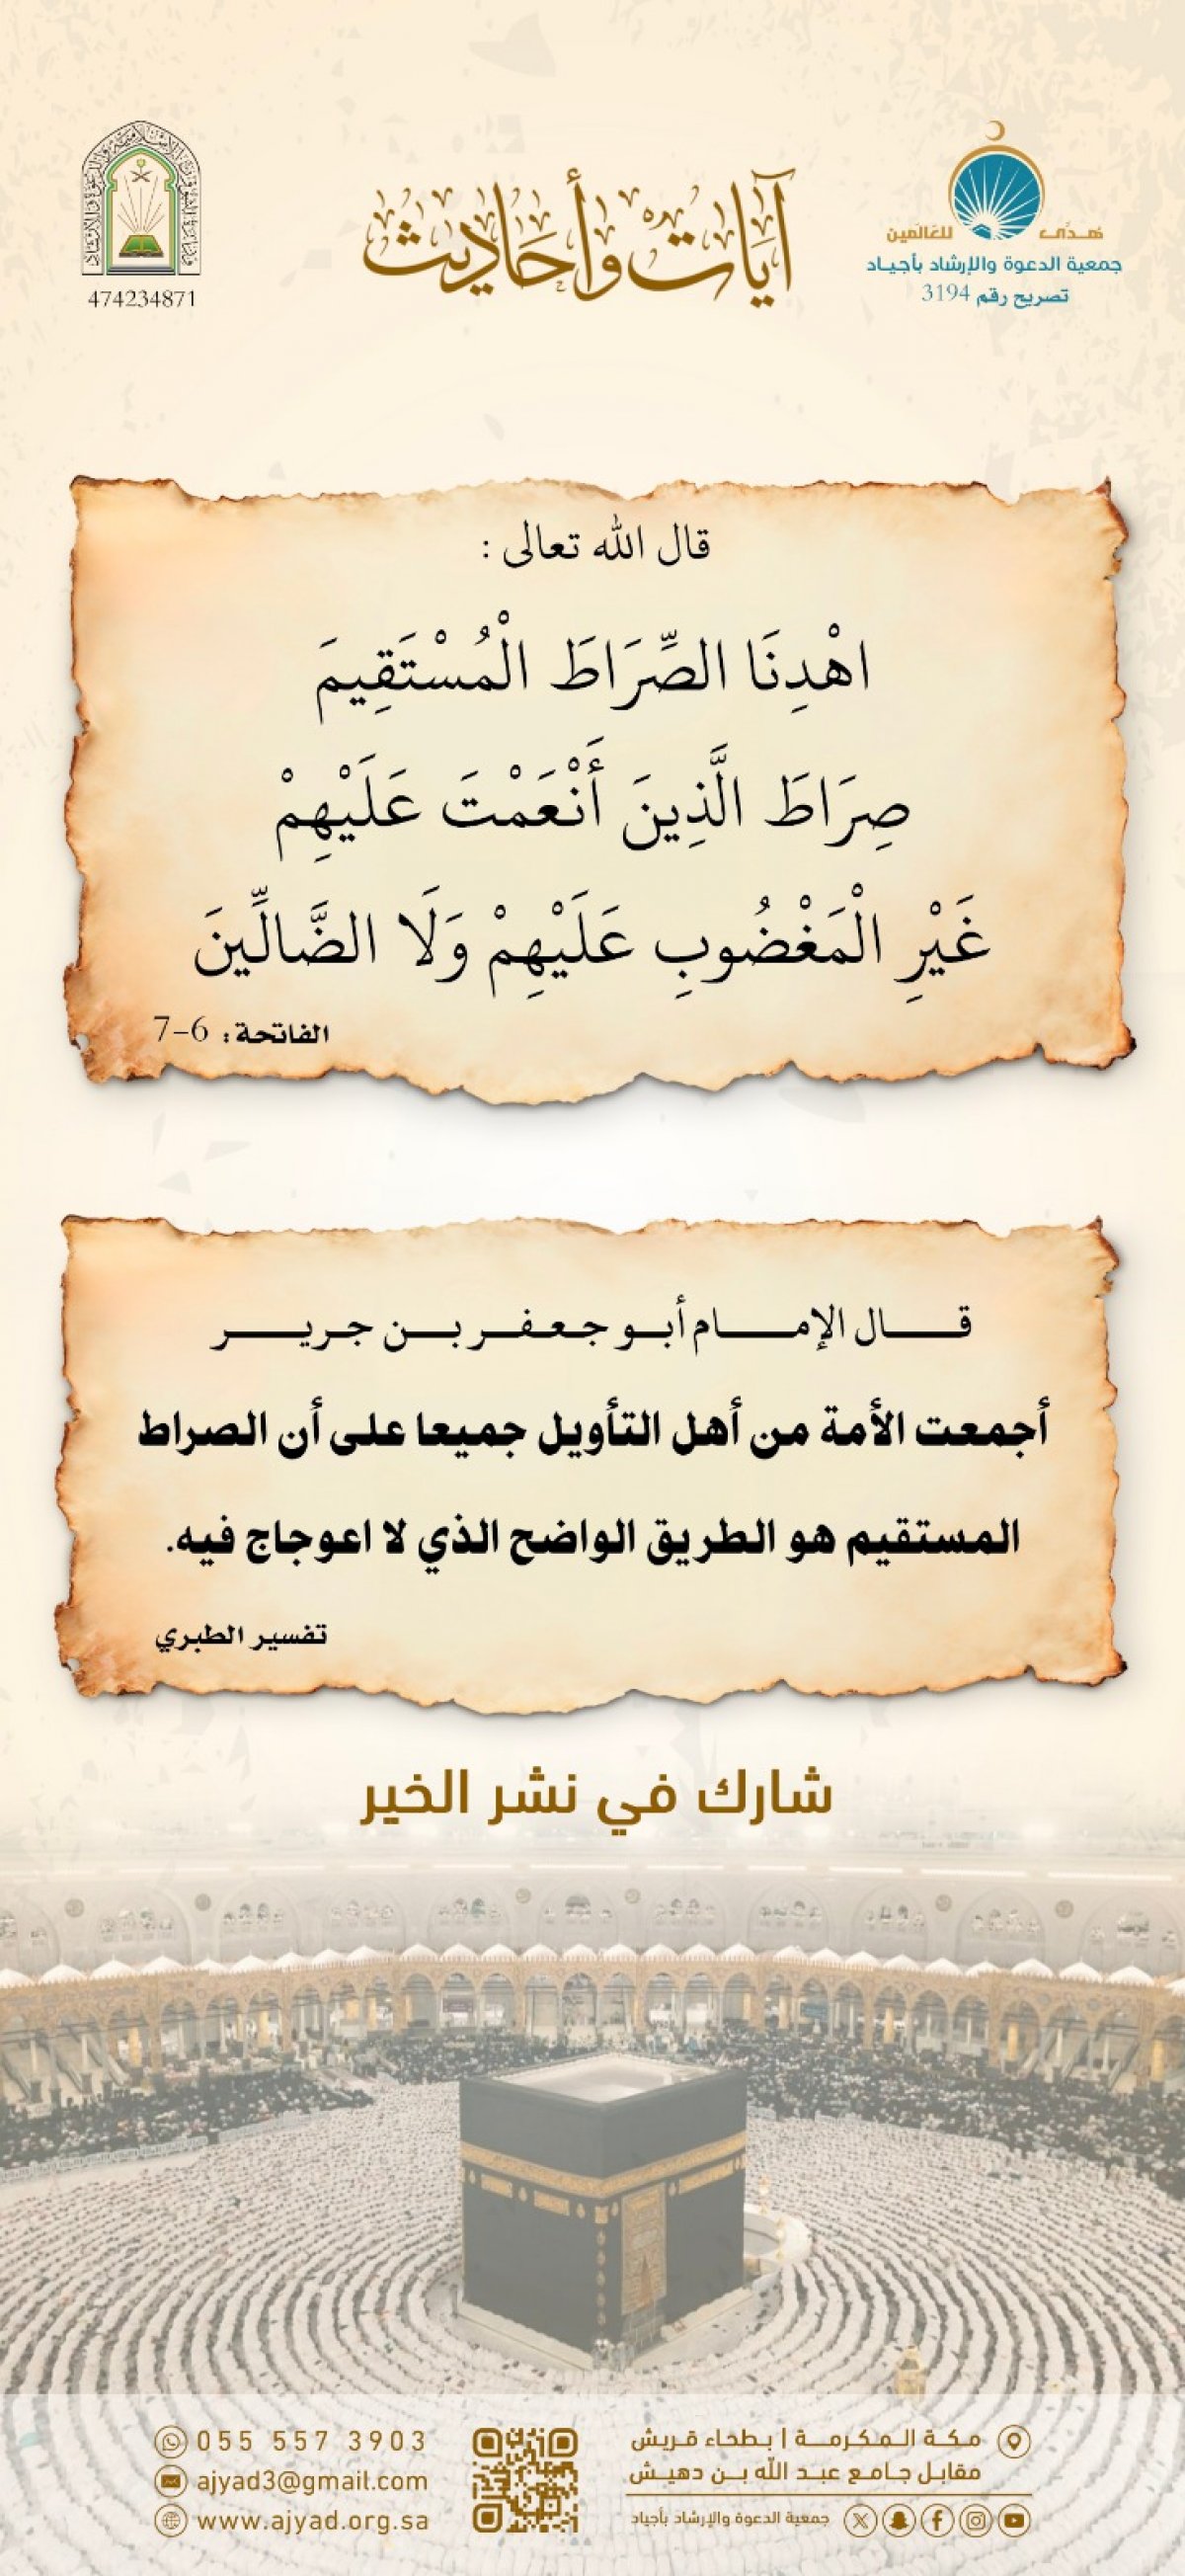 آيات وأحاديث
هدى للعالمين
جمعية الدعوة والإرشاد بأجياد
تصريح رقم 3194
474234871
قال الله تعالى :
اهْدِنَا الصِّرَاطَ الْمُسْتَقِيمَ
صِرَاطَ الَّذِينَ أَنْعَمْتَ عَلَيْهِمْ
غَيْرِ الْمَغْضُوبِ عَلَيْهِمْ وَلَا الضَّالِّينَ
الفاتحة: 6-7
قـــال الإمـــــام أبـو جـعـفـر بـــن جـريـــــر
أجمعت الأمة من أهل التأويل جميعا على أن الصراط
المستقيم هو الطريق الواضح الذي لا اعوجاج فيه.
تفسير الطبري
شارك في نشر الخير
مكة المكرمة | بطحاء قريش
مقابل جامع عبد الله بن دهيش
جمعية الدعوة والإرشاد بأجياد
055 557 3903
ajyad3@gmail.com
www.ajyad.org.sa